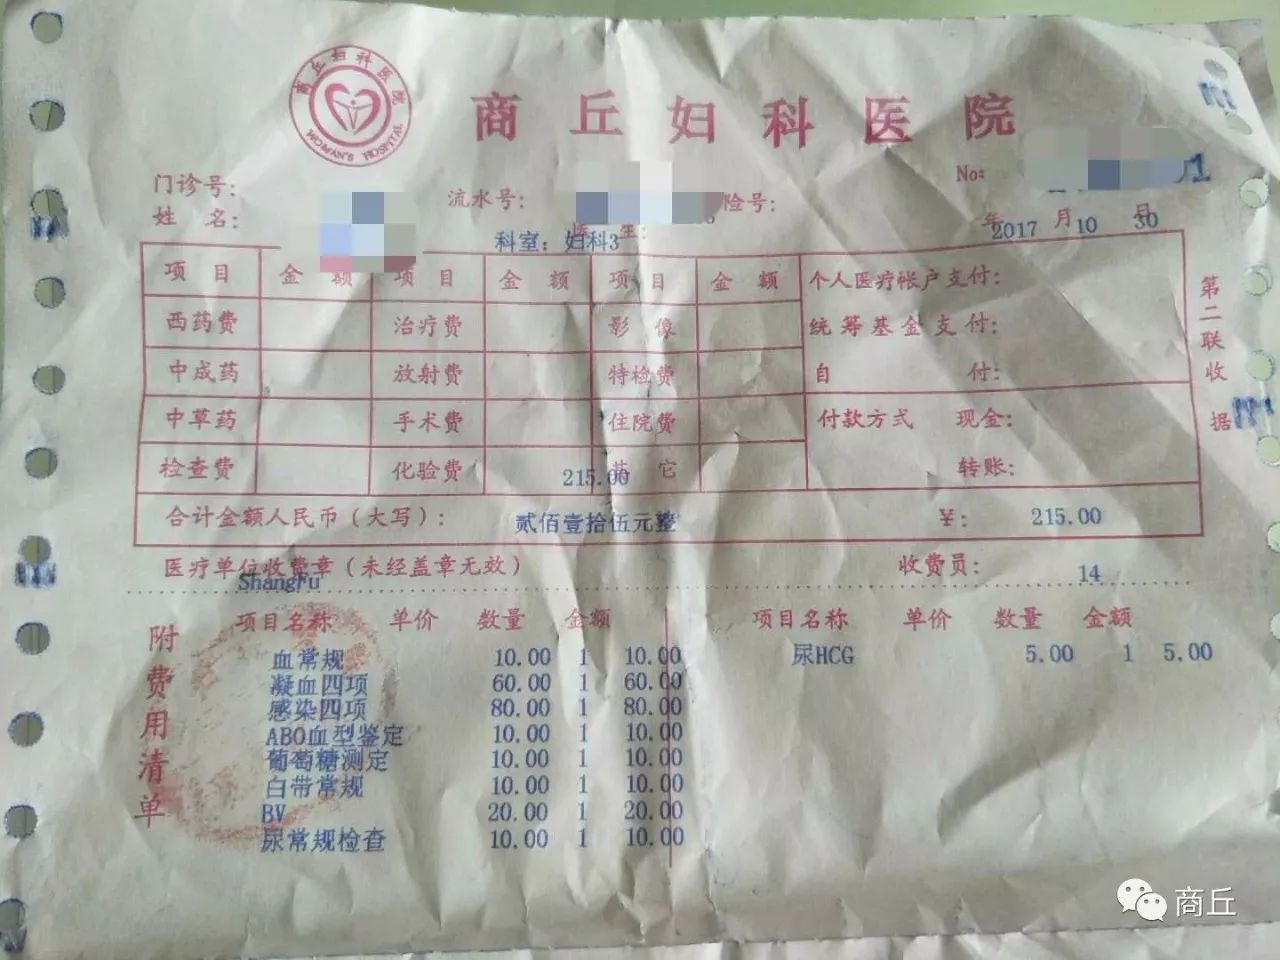 商丘妇科医院
WOMAN'S HOSPITAL
商丘妇科医院
No: 01
门诊号:
流水号: 险号:
姓 名: 医 生:
科室: 妇科3
年 月 日
2017 10 30
项 目 金 额 项 目 金 额 项 目 金 额 个人医疗帐户支付:
西药费 治疗费 影 像 统筹基金支付:
中成药 放射费 特检费 自 付:
中草药 手术费 住院费 付款方式 现金:
检查费 化验费 215.00 其 它 转账:
合计金额人民币(大写): 贰佰壹拾伍元整 ¥: 215.00
医疗单位收费章(未经盖章无效) 收费员: 14
ShangFu
第二联收据
附费用清单
项目名称 单价 数量 金额 项目名称 单价 数量 金额
血常规 10.00 1 10.00 尿HCG 5.00 1 5.00
凝血四项 60.00 1 60.00
感染四项 80.00 1 80.00
ABO血型鉴定 10.00 1 10.00
葡萄糖测定 10.00 1 10.00
白带常规 10.00 1 10.00
BV 20.00 1 20.00
尿常规检查 10.00 1 10.00
商丘